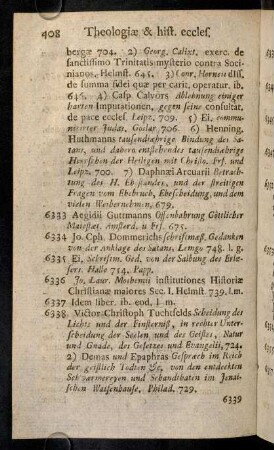 408 Theologiæ & hist. eccles.
bergæ 704. 2) Georg. Calixt. exerc. de
sanctissimo Trinitatis mysterio contra Soci-
nianos, Helmst. 645. 3) Conr. Horneii diss.
de summa fidei quæ per carit. operatur. ib.
646. 4) Casp. Calvörs Ablehnung einiger
harten Imputationen, gegen seine consultat.
de pace eccles. Leipz. 709. 5) Ei. commu-
nicirter Judas, Goslar 706. 6) Henning.
Huthmanns tausendjährige Bindung des Sa-
tans, und daraus entstehender tausendjährige
Herrschen der Heiligen mit Christo. Frf. und
Leipz. 700. 7) Daphnæi Arcuarii Betrach-
tung des H. Ehstandes, und der streitigen
Fragen vom Ehebruch, Ehescheidung, und dem
vielen Weibernehmen, 679.
6333 Aegidii Guttmanns Offenbahrung Göttlicher
Maiestæt, Amsterd. u Frf. 675.
6334 Jo. Cph. Dommerichs schriftmæß. Gedanken
von der Anklage des Satans, Lemgo 748. l. g.
6335 Ei. Schriftm. Ged. von der Salbung des Erlö-
sers. Halle 754. Papp.
6336 Jo. Laur. Moshemii institutiones Historiæ
Christianæ maiores Sec. I. Helmst. 739. l. m.
6337 Idem liber. ib. eod. l m.
6338. Victor Christoph Tuchtfelds Scheidung des
Lichts und der Finsterniß, in rechter Unter-
scheidung der Seelen und des Geistes, Natur
und Gnade, des Gesetzes und Evangelii, 724.
2) Demas und Epaphras Gespräch im Reich
der geistlich Todten &c. von den entdeckten
Schwärmereyen und Schandthaten im Jenai-
schen Waisenhause, Philad. 729.
6339